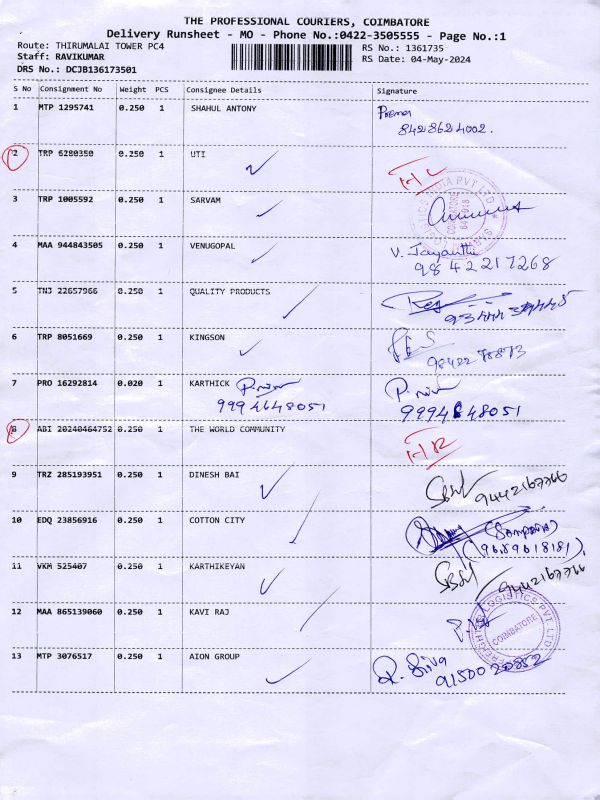 THE PROFESSIONAL COURIERS, COIMBATORE
Delivery Runsheet - MO - Phone No.:0422-3505555 - Page No.:1
Route: THIRUMALAI TOWER PC4 RS No.: 1361735
Staff: RAVIKUMAR RS Date: 04-May-2024
DRS No.: DCJB136173501
S No Consignment No Weight PCS Consignee Details Signature
1 MTP 1295741 0.250 1 SHAHUL ANTONY Prema
8428624002.
2 TRP 6280350 0.250 1 UTI
3 TRP 1005592 0.250 1 SARVAM
4 MAA 944843505 0.250 1 VENUGOPAL V. Jayanthi
9842217268
5 TNJ 22657966 0.250 1 QUALITY PRODUCTS
6 TRP 8051669 0.250 1 KINGSON
9842278873
7 PRO 16292814 0.020 1 KARTHICK
9994648051 9994648051
8 ABI 20240464752 0.250 1 THE WORLD COMMUNITY
9 TRZ 285193951 0.250 1 DINESH BAI
9442167766
10 EDQ 23856916 0.250 1 COTTON CITY
(9689618181),
11 VKM 525407 0.250 1 KARTHIKEYAN
9442167766
12 MAA 865139060 0.250 1 KAVI RAJ
LOGISTICS PVT. LTD
COIMBATORE
13 MTP 3076517 0.250 1 AION GROUP R. Siva
9150020852